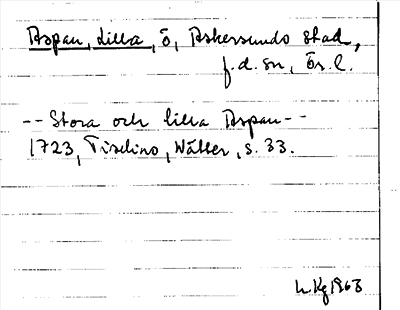 Aspan, Lilla, ö, Askersunds stad,
f.d. sn, Ör. l.
-- Stora och lilla Aspan --
1723, Tiselius, Wätter, s. 33.
1963